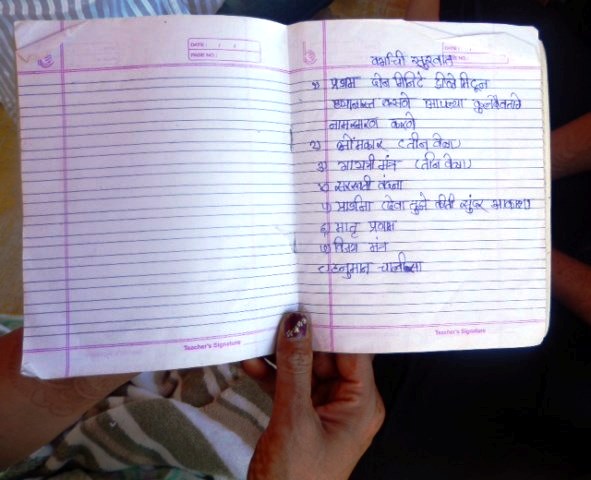 DATE : / /
PAGE NO :
Teacher's Signature
DATE : / /
PAGE NO :
वर्गाची सुरवात
१) प्रथम दोन मिनिटे डोळे मिटून
ध्यानस्त बसने आपल्या कुलदैवताचे
नामस्मरण करणे
२) ओंमकार (तीन वेळा)
३) गायत्री मंत्र (तीन वेळा)
४) सरस्वती वंदना
५) प्रार्थना (देवा तुझे किती सुंदर आकाश)
६) मातृ प्रणाम
७) विजय मंत्र
८ हनुमान चालीसा
Teacher's Signature